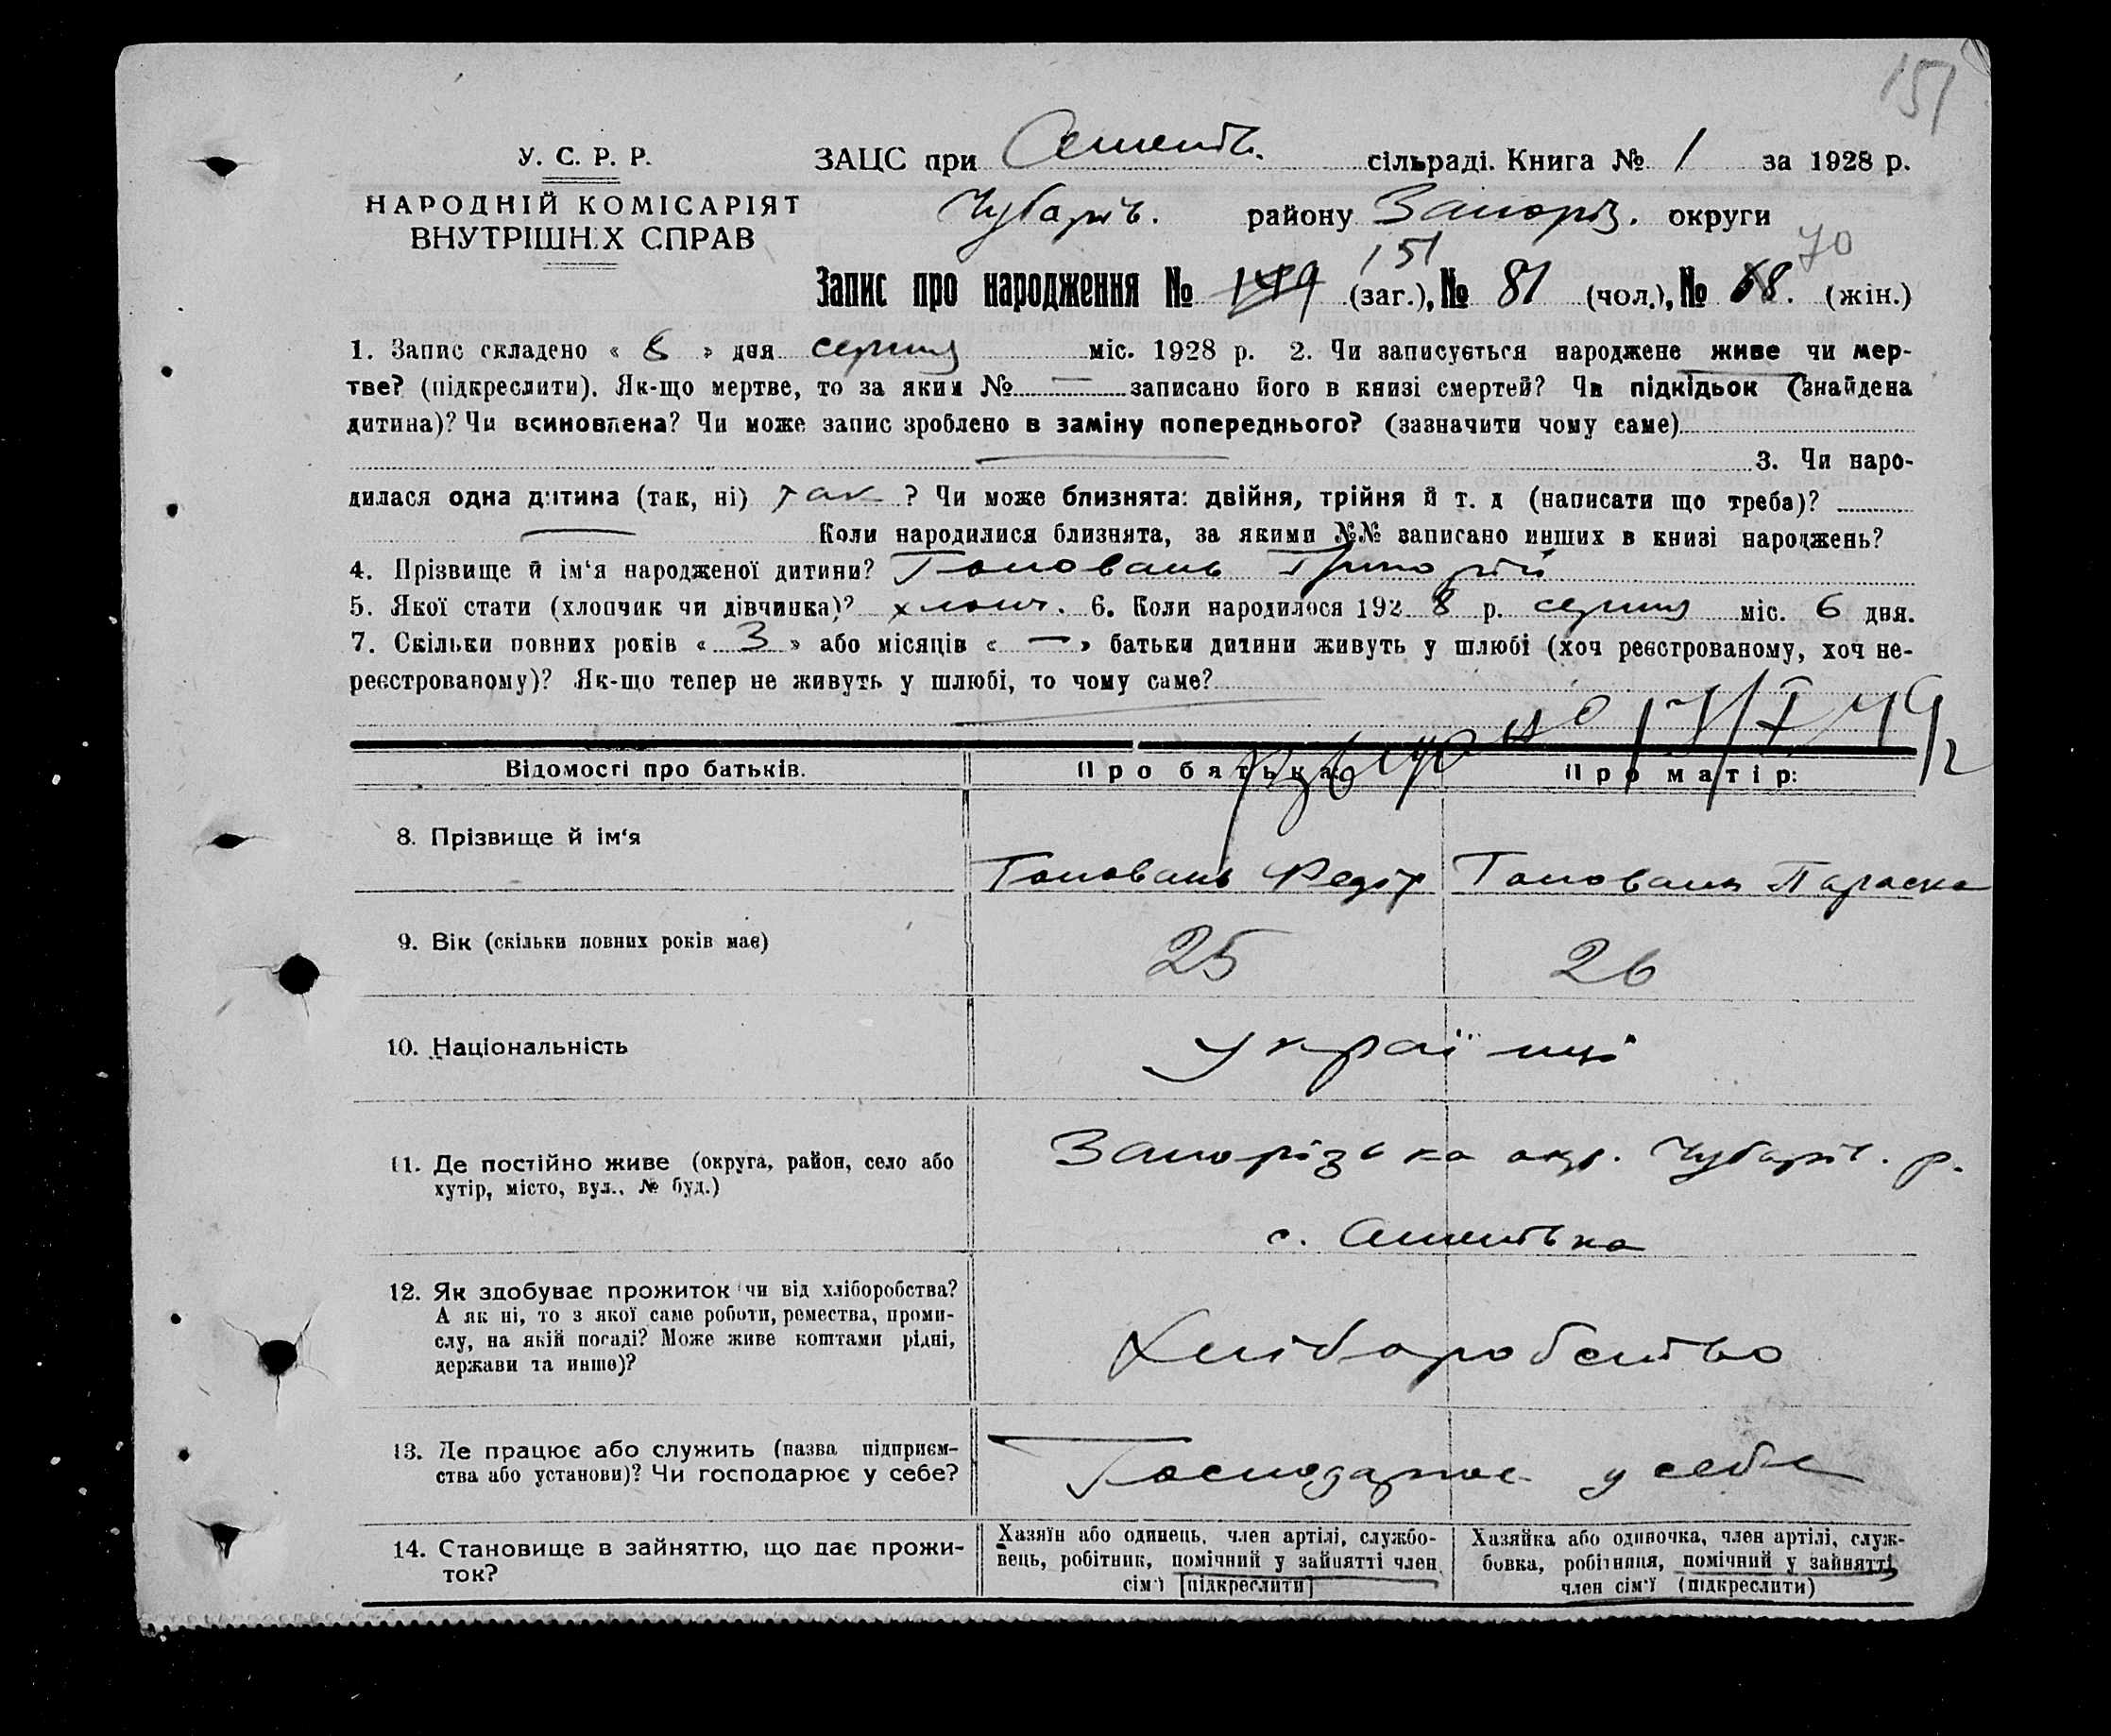 151
У. С. Р. Р.
НАРОДНІЙ КОМІСАРІЯТ
ВНУТРІШНІХ СПРАВ
ЗАЦС при сільраді. Книга № 1 за 1928 р.
Чубарів. району Запоріз. округи
151 70
Запис про народження № 149 (заг.), № 81 (чол.), № 68. (жін.)
1. Запис складено « 8 » дня серпня міс. 1928 р. 2. Чи записується народжене живе чи мер-
тве? (підкреслити). Як-що мертве, то за яким № — записано його в книзі смертей? Чи підкідьок (знайдена
дитина)? Чи всиновлена? Чи може запис зроблено в заміну попереднього? (зазначити чому саме)
— 3. Чи наро-
дилася одна дитина (так, ні) так ? Чи може близнята: двійня, трійня й т. д (написати що треба)?
— Коли народилися близнята, за якими №№ записано инших в книзі народжень?
4. Прізвище й ім‘я народженої дитини? Головань Григорій
5. Якої стати (хлопчик чи дівчинка)? хлопч. 6. Коли народилося 1928 р. серпня міс. 6 дня.
7. Скільки повних років « 3 » або місяців « — » батьки дитини живуть у шлюбі (хоч реєстрованому, хоч не-
реєстрованому)? Як-що тепер не живуть у шлюбі, то чому саме?
Відомості про батьків. Про батька: Про матір:
8. Прізвище й ім‘я Головань Федір Головань Параска
9. Вік (скільки повних років має) 25 26
10. Національність Українці
11. Де постійно живе (округа, район, село або Запорізька окр. Чубарів. р.
хутір, місто, вул., № буд.)
с.
12. Як здобуває прожиток чи від хліборобства?
А як ні, то з якої саме роботи, ремества, проми-
слу, на якій посаді? Може живе коштами рідні, Хліборобство
держави та инше)?
13. Де працює або служить (назва підприєм-
ства або установи)? Чи господарює у себе? Господарює у себе
14. Становище в зайняттю, що дає прожи-
ток?
Хазяїн або одинець, член артілі, службо-
вець, робітник, помічний у зайнятті член
сім‘ї [підкреслити]
Хазяйка або одиночка, член артілі, служ-
бовка, робітниця, помічний у зайнятті
член сім‘ї (підкреслити)